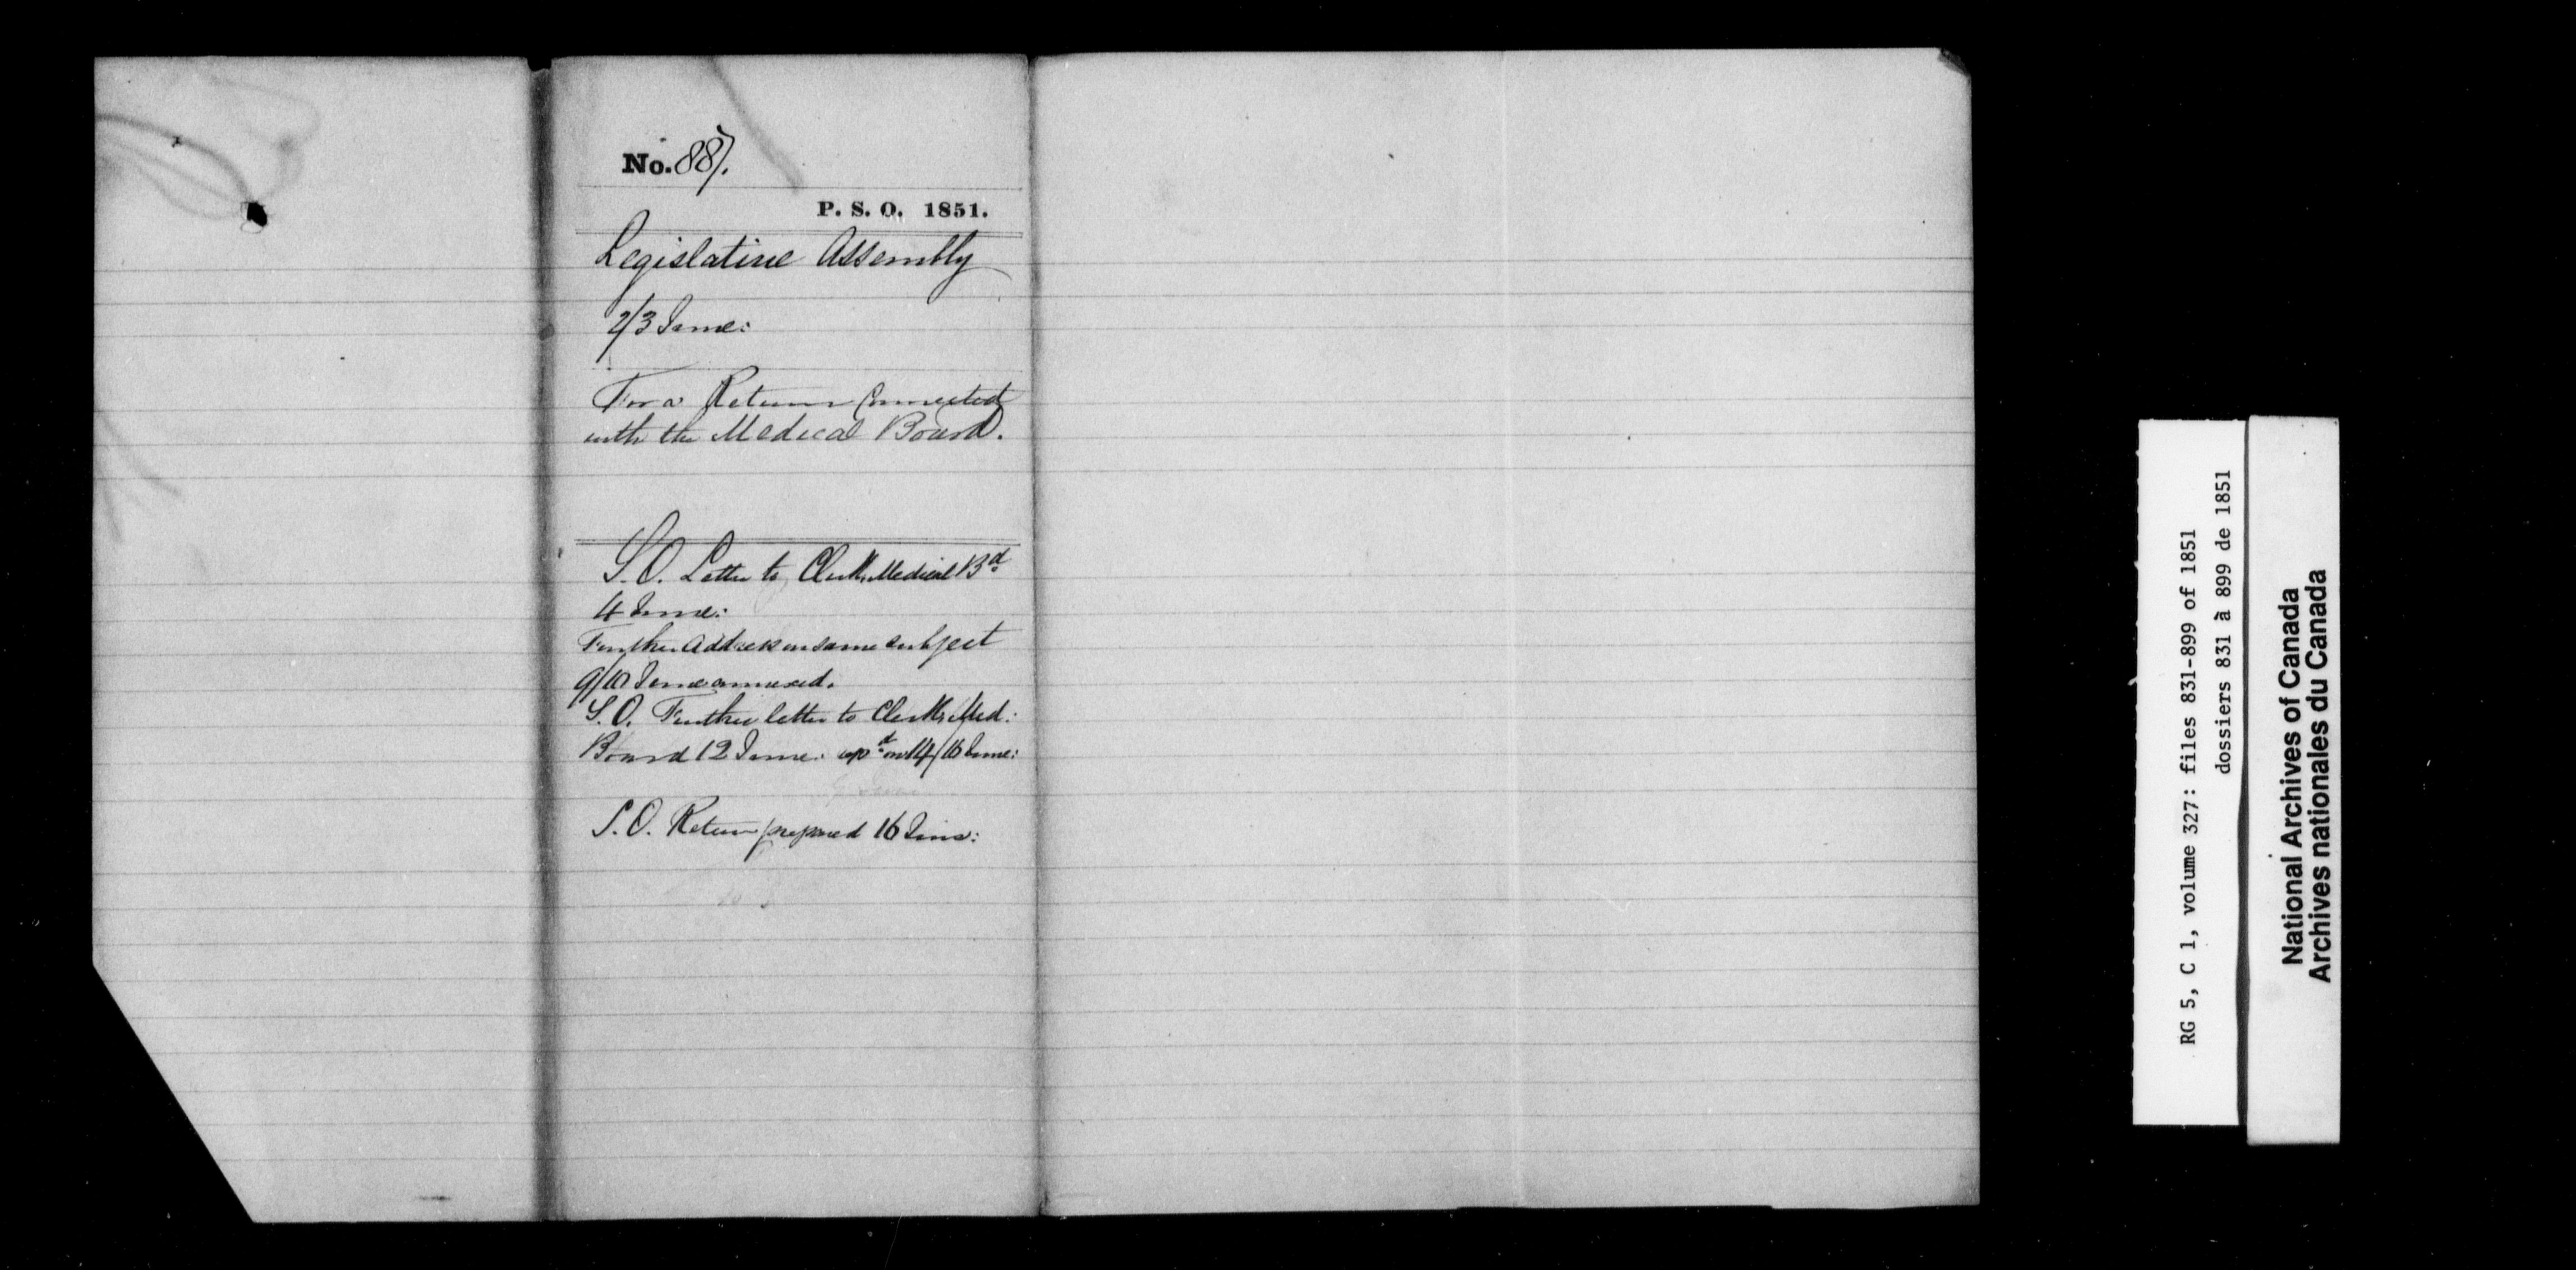 No. 887.
P. S. O. 1851.
Legislative Assembly
2/3 June:
For a Return Connected
with the Medical Board.
S. O. Letter to Clerk, Medical Bd
4 June:
Further Address on same subject
9/10 June annexed.
S. O. Further letter to Clerk, Med:
Board 12 June: on 14/16 June:
S. O. Return prepared 16 June:
RG 5, C 1, volume 327: files 831-899 of 1851
dossiers 831 à 899 de 1851
National Archives of Canada
Archives nationales du Canada